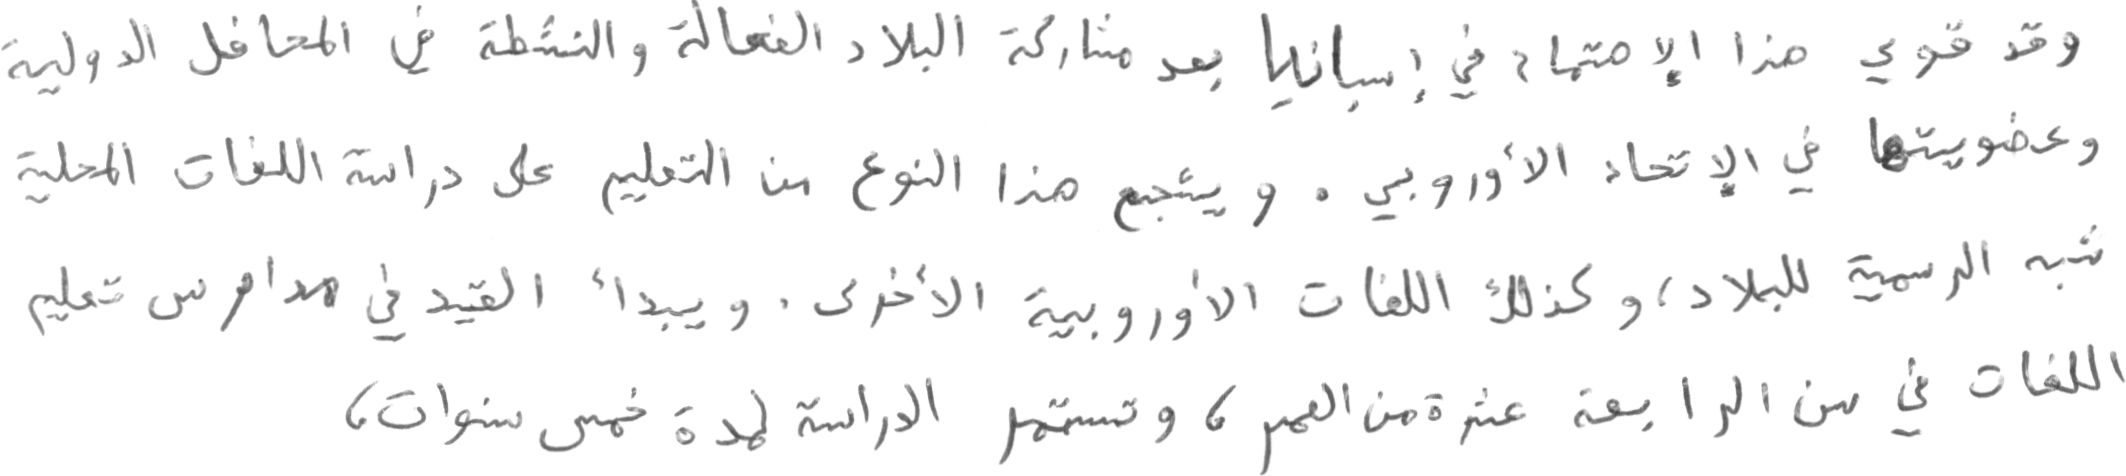 وقد قوي هذا الإهتمام في إسبانيا بعد مشاركة البلاد الفعالة والنشطة في المحافل الدولية
وعضويتها في الإتحاد الأوروبي . ويشجع هذا النوع من التعليم على دراسة اللغات المحلية
شبه الرسمية للبلاد، وكذلك اللغات الأوروبية الأخرى . ويبدأ القيد في مدارس تعليم
اللغات في سن الرابعة عشرة من العمر ، وتستمر الدراسة لمدة خمس سنوات،